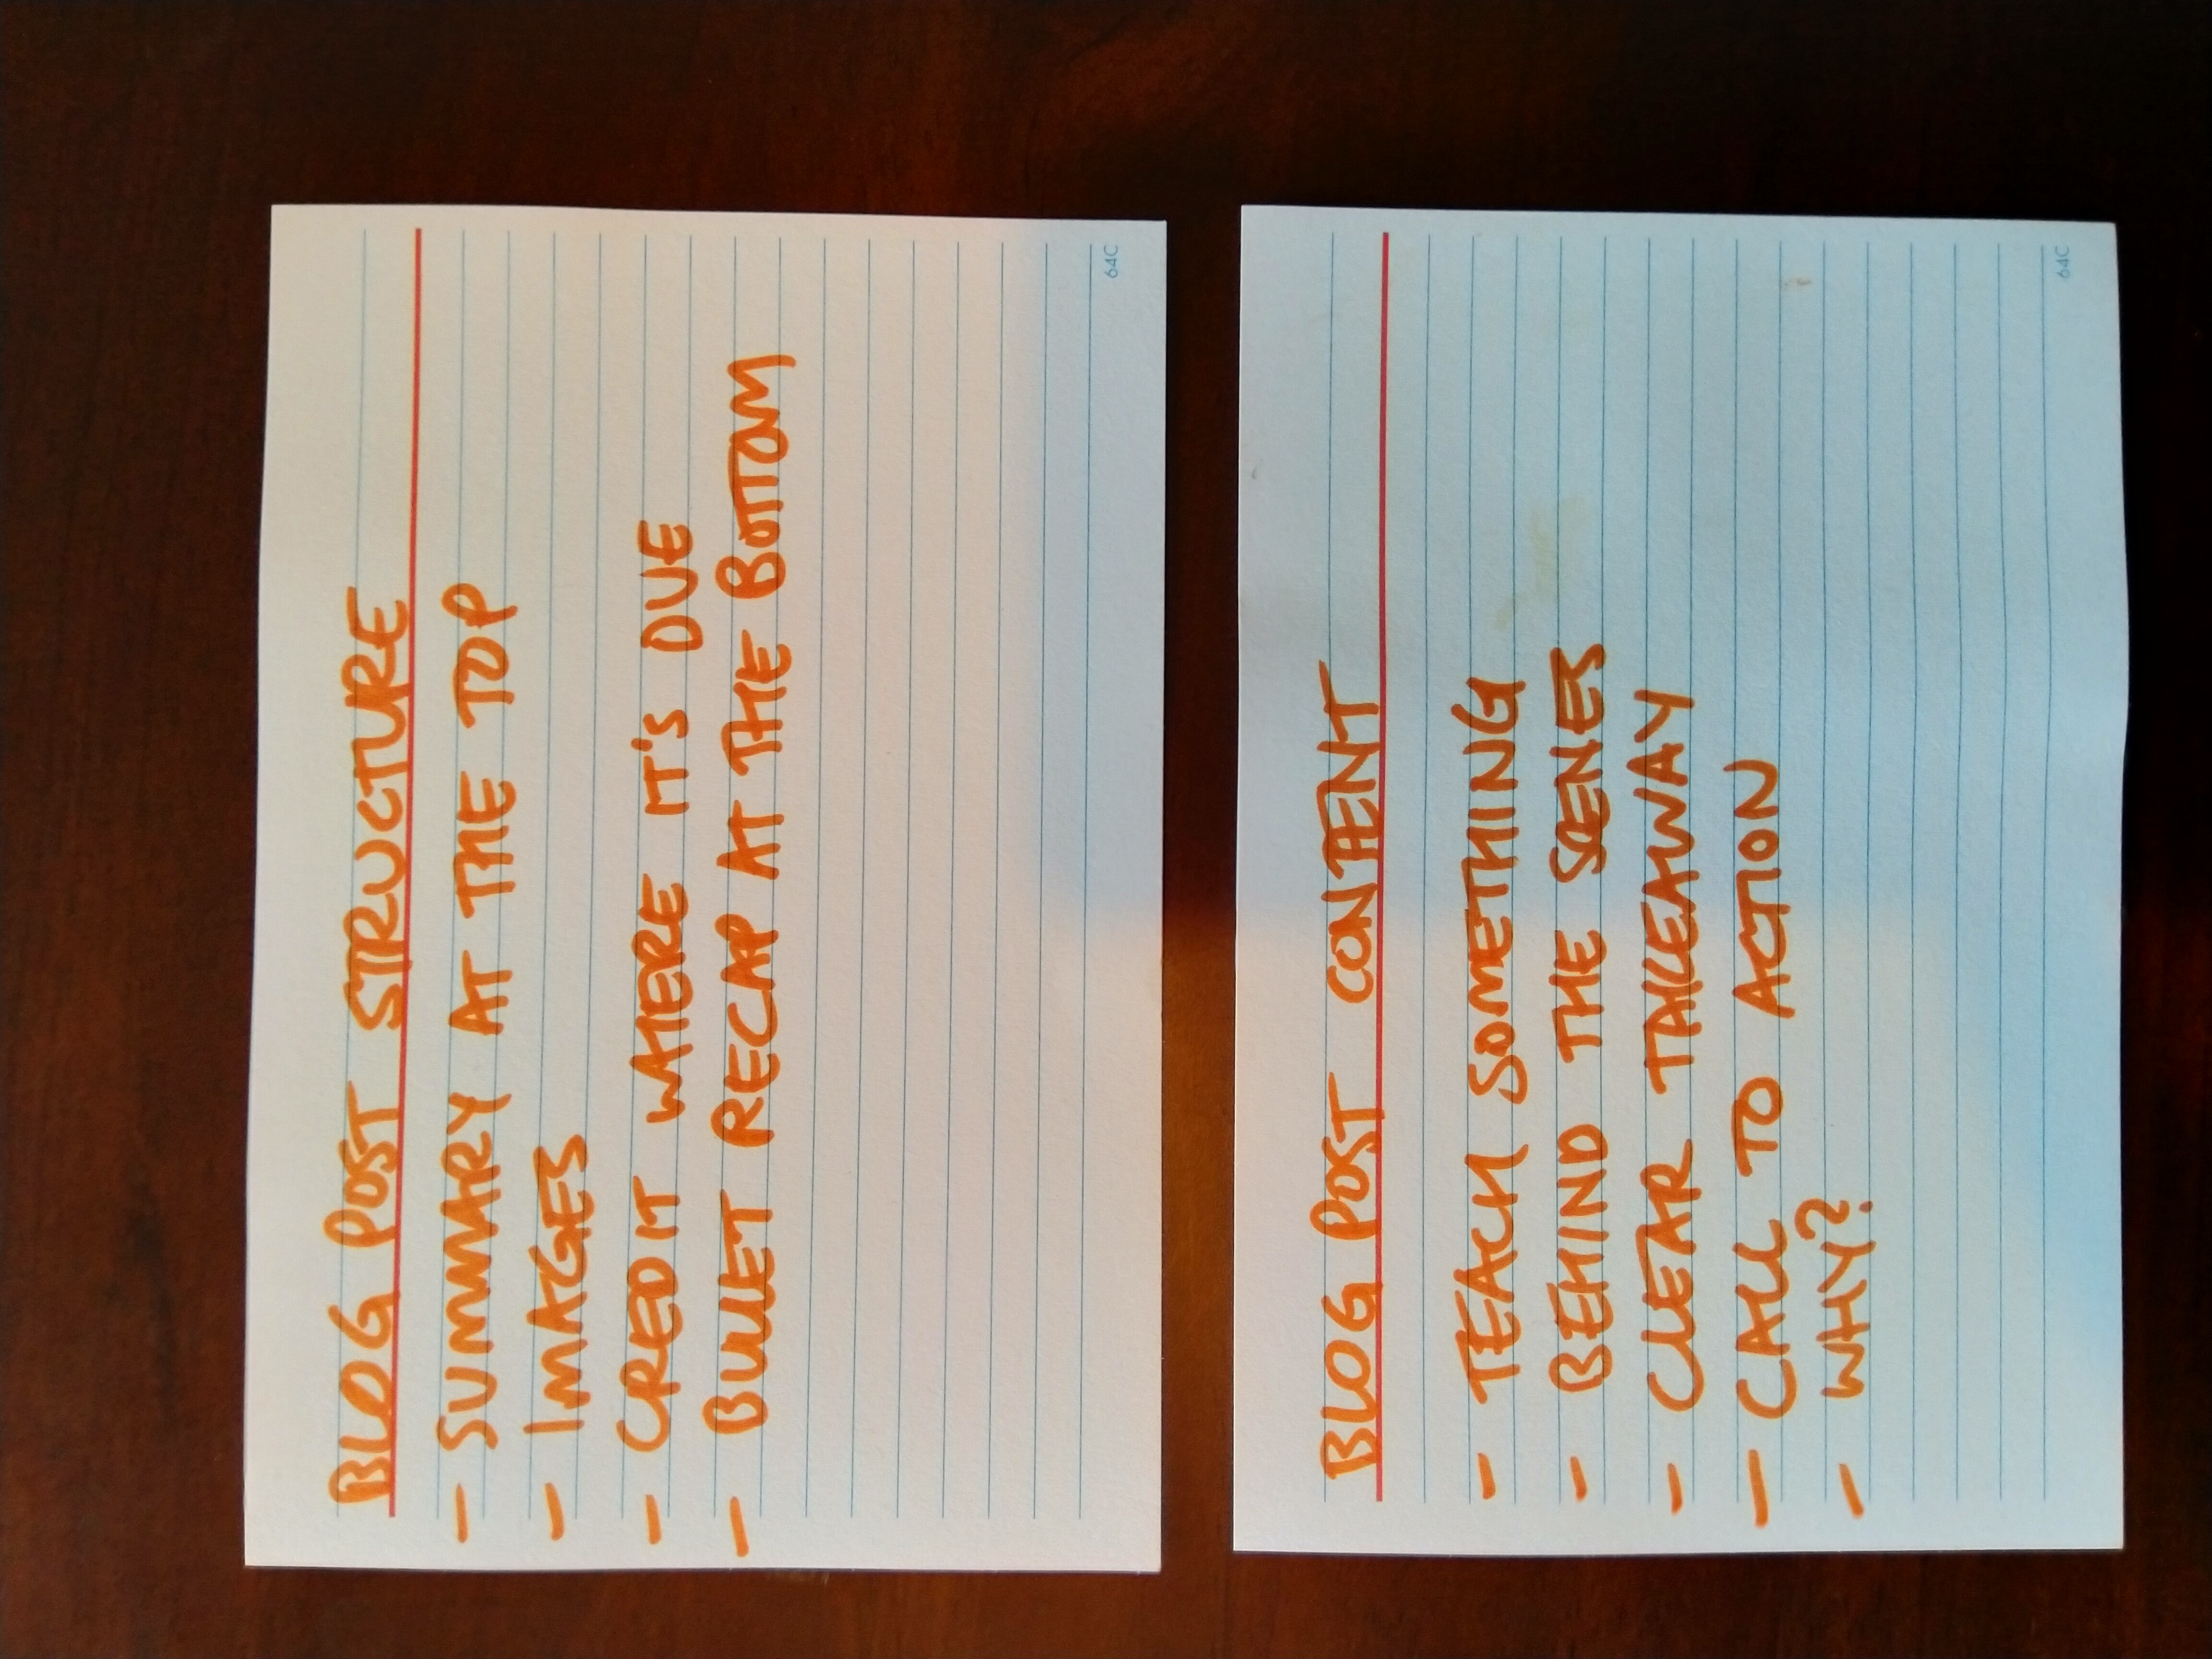 BLOG POST STRUCTURE
- SUMMARY AT THE TOP
- IMAGES
- CREDIT WHERE IT'S DUE
- BULLET RECAP AT THE BOTTOM
64C
BLOG POST CONTENT
- TEACH SOMETHING
- BEHIND THE SCENES
- CLEAR TAKEAWAY
- CALL TO ACTION
- WHY?
64C